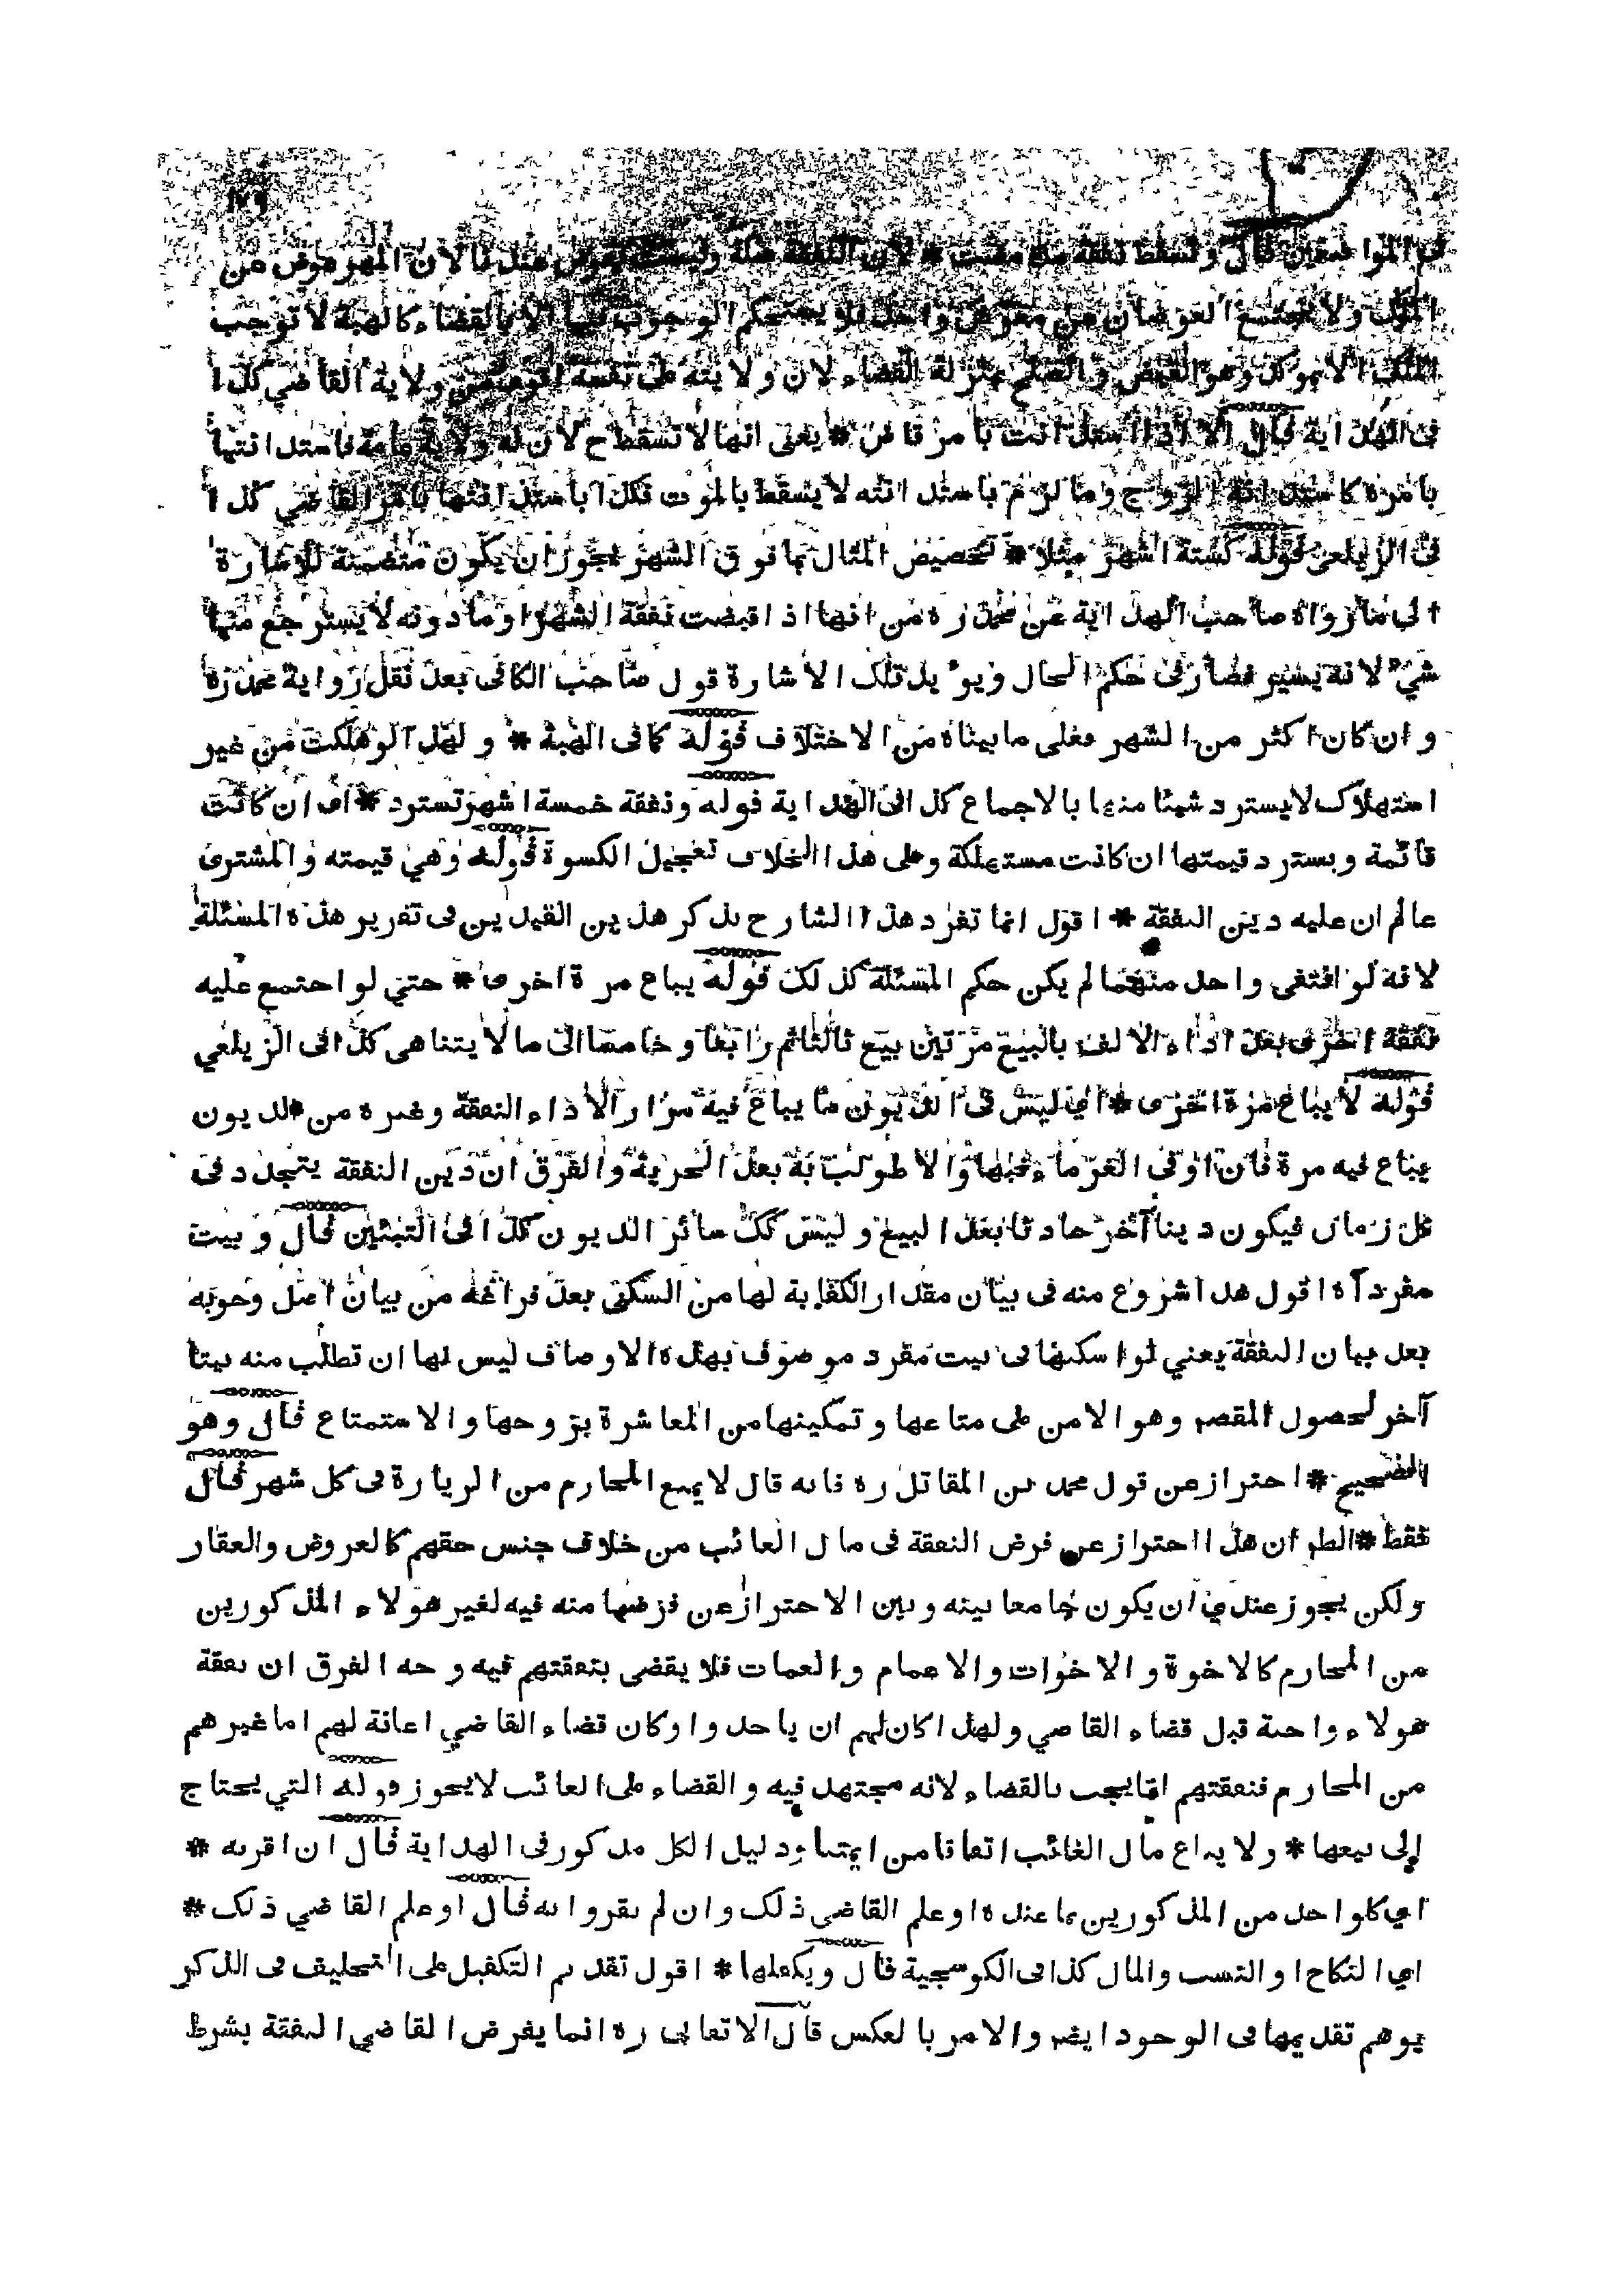 ١٧٩
فى الموا ضعين قال وتسقط نفقة مدة مضت * لان النفقة صلة وليست بعوض عندنا لان المهر عوض عن
الملك ولا يجتمع العوضان عن معوض واحد فلا يستحكم الوجوب فيها الا بالقضاء كالهبة لا توجب
الملك الا بموكد وهو القبض والصلح بمنزلة القضاء لان ولايته على نفسه اقوى من ولاية القاضي كذا
فى الهداية قال الا اذا استدانت بامر قاض * يعنى انها لا تسقط ح لان له ولاية عامة فاستدانتها
بامره كاستدانة الزوج وما لزم باستدانته لا يسقط بالموت فكذا باستدانتها بامر القاضي كذا
فى الزيلعى قوله كستة اشهر مثلا * تخصيص المثال بما فوق الشهر يجوز ان يكون متضمنة للاشارة
الى ما رواه صاحب الهداية عن محمد ره من انها اذا قبضت نفقة الشهر او ما دونه لا يسترجع منها
شيء لانه يسير فصار فى حكم الحال ويويد تلك الاشارة قول صاحب الكافى بعد نقل رواية محمد ره
وان كان اكثر من الشهر فعلى ما بيناه من الاختلاف قوله كما فى الهبة * ولهذا لو هلكت من غير
استهلاك لا يسترد شيئا منها بالاجماع كذا فى الهداية قوله ونفقة خمسة اشهر تسترد * اى ان كانت
قائمة ويسترد قيمتها ان كانت مستهلكة وعلى هذا الخلاف تعجيل الكسوة قوله وهي قيمته والمشترى
عالم ان عليه دين النفقة * اقول انما تفرد هذا الشارح بذكر هذين القيدين فى تقرير هذه المسئلة
لانه لو انتفى واحد منهما لم يكن حكم المسئلة كذلك قوله يباع مرة اخرى * حتي لو اجتمع عليه
نفقة اخرى بعد اداء الالف بالبيع مرتين بيع ثالثا ثم رابعا وخامسا الى ما لا يتناهى كذا فى الزيلعي
قوله لا يباع مرة اخرى * اي ليس فى الديون ما يباع فيه مرارا الا ذاء النفقة وغيره من الديون
يباع فيه مرة فان اوفى الغرماء فبها والا طولب به بعد الحرية والفرق ان دين النفقة يتجدد فى
كل زمان فيكون دينا آخر حادثا بعد البيع وليس كك سائر الديون كذا فى التبئين قال وبيت
مفرد آه اقول هذا شروع منه فى بيان مقدار الكفاية لها من السكنى بعد فراغه من بيان اصل وجوبه
بعد بيان النفقة يعني لو اسكنها فى بيت مفرد موصوف بهذه الاوصاف ليس لها ان تطلب منه بيتا
آخر لحصول المقصم وهو الامن على متاعها وتمكينها من المعاشرة بزوجها والاستمتاع قال وهو
الصحيح * احتراز عن قول محمد بن المقاتل ره فانه قال لا يمنع المحارم من الزيارة فى كل شهر قال
فقط * الظم ان هذا احتراز عن فرض النفقة فى مال الغائب من خلاف جنس حقهم كالعروض والعقار
ولكن يجوز عندي ان يكون جامعا بينه وبين الاحتراز عن فرضها منه فيه لغير هولاء المذكورين
من المحارم كالاخوة والاخوات والاعمام والعمات فلا يقضى بنفقتهم فيه وجه الفرق ان نفقة
هولاء واجبة قبل قضاء القاضي ولهذا كان لهم ان ياخذوا وكان قضاء القاضي اعانة لهم اما غيرهم
من المحارم فنفقتهم انما يجب بالقضاء لانه مجتهد فيه والقضاء على الغائب لا يجوز قوله التي يحتاج
الى بيعها * ولا يباع مال الغائب اتفاقا من ايمتنا ودليل الكل مذكور فى الهداية قال ان اقر به *
اي كل واحد من المذكورين بما عنده او علم القاضى ذلك وان لم يقروا به قال او علم القاضي ذلك *
اي النكاح او النسب والمال كذا فى الكوسجية قال ويكفلها * اقول تقديم التكفيل على التحليف فى الذكر
يوهم تقديمها فى الوجود ايضم والامر بالعكس قال الاتقانى ره انما يفرض القاضي النفقة بشرط